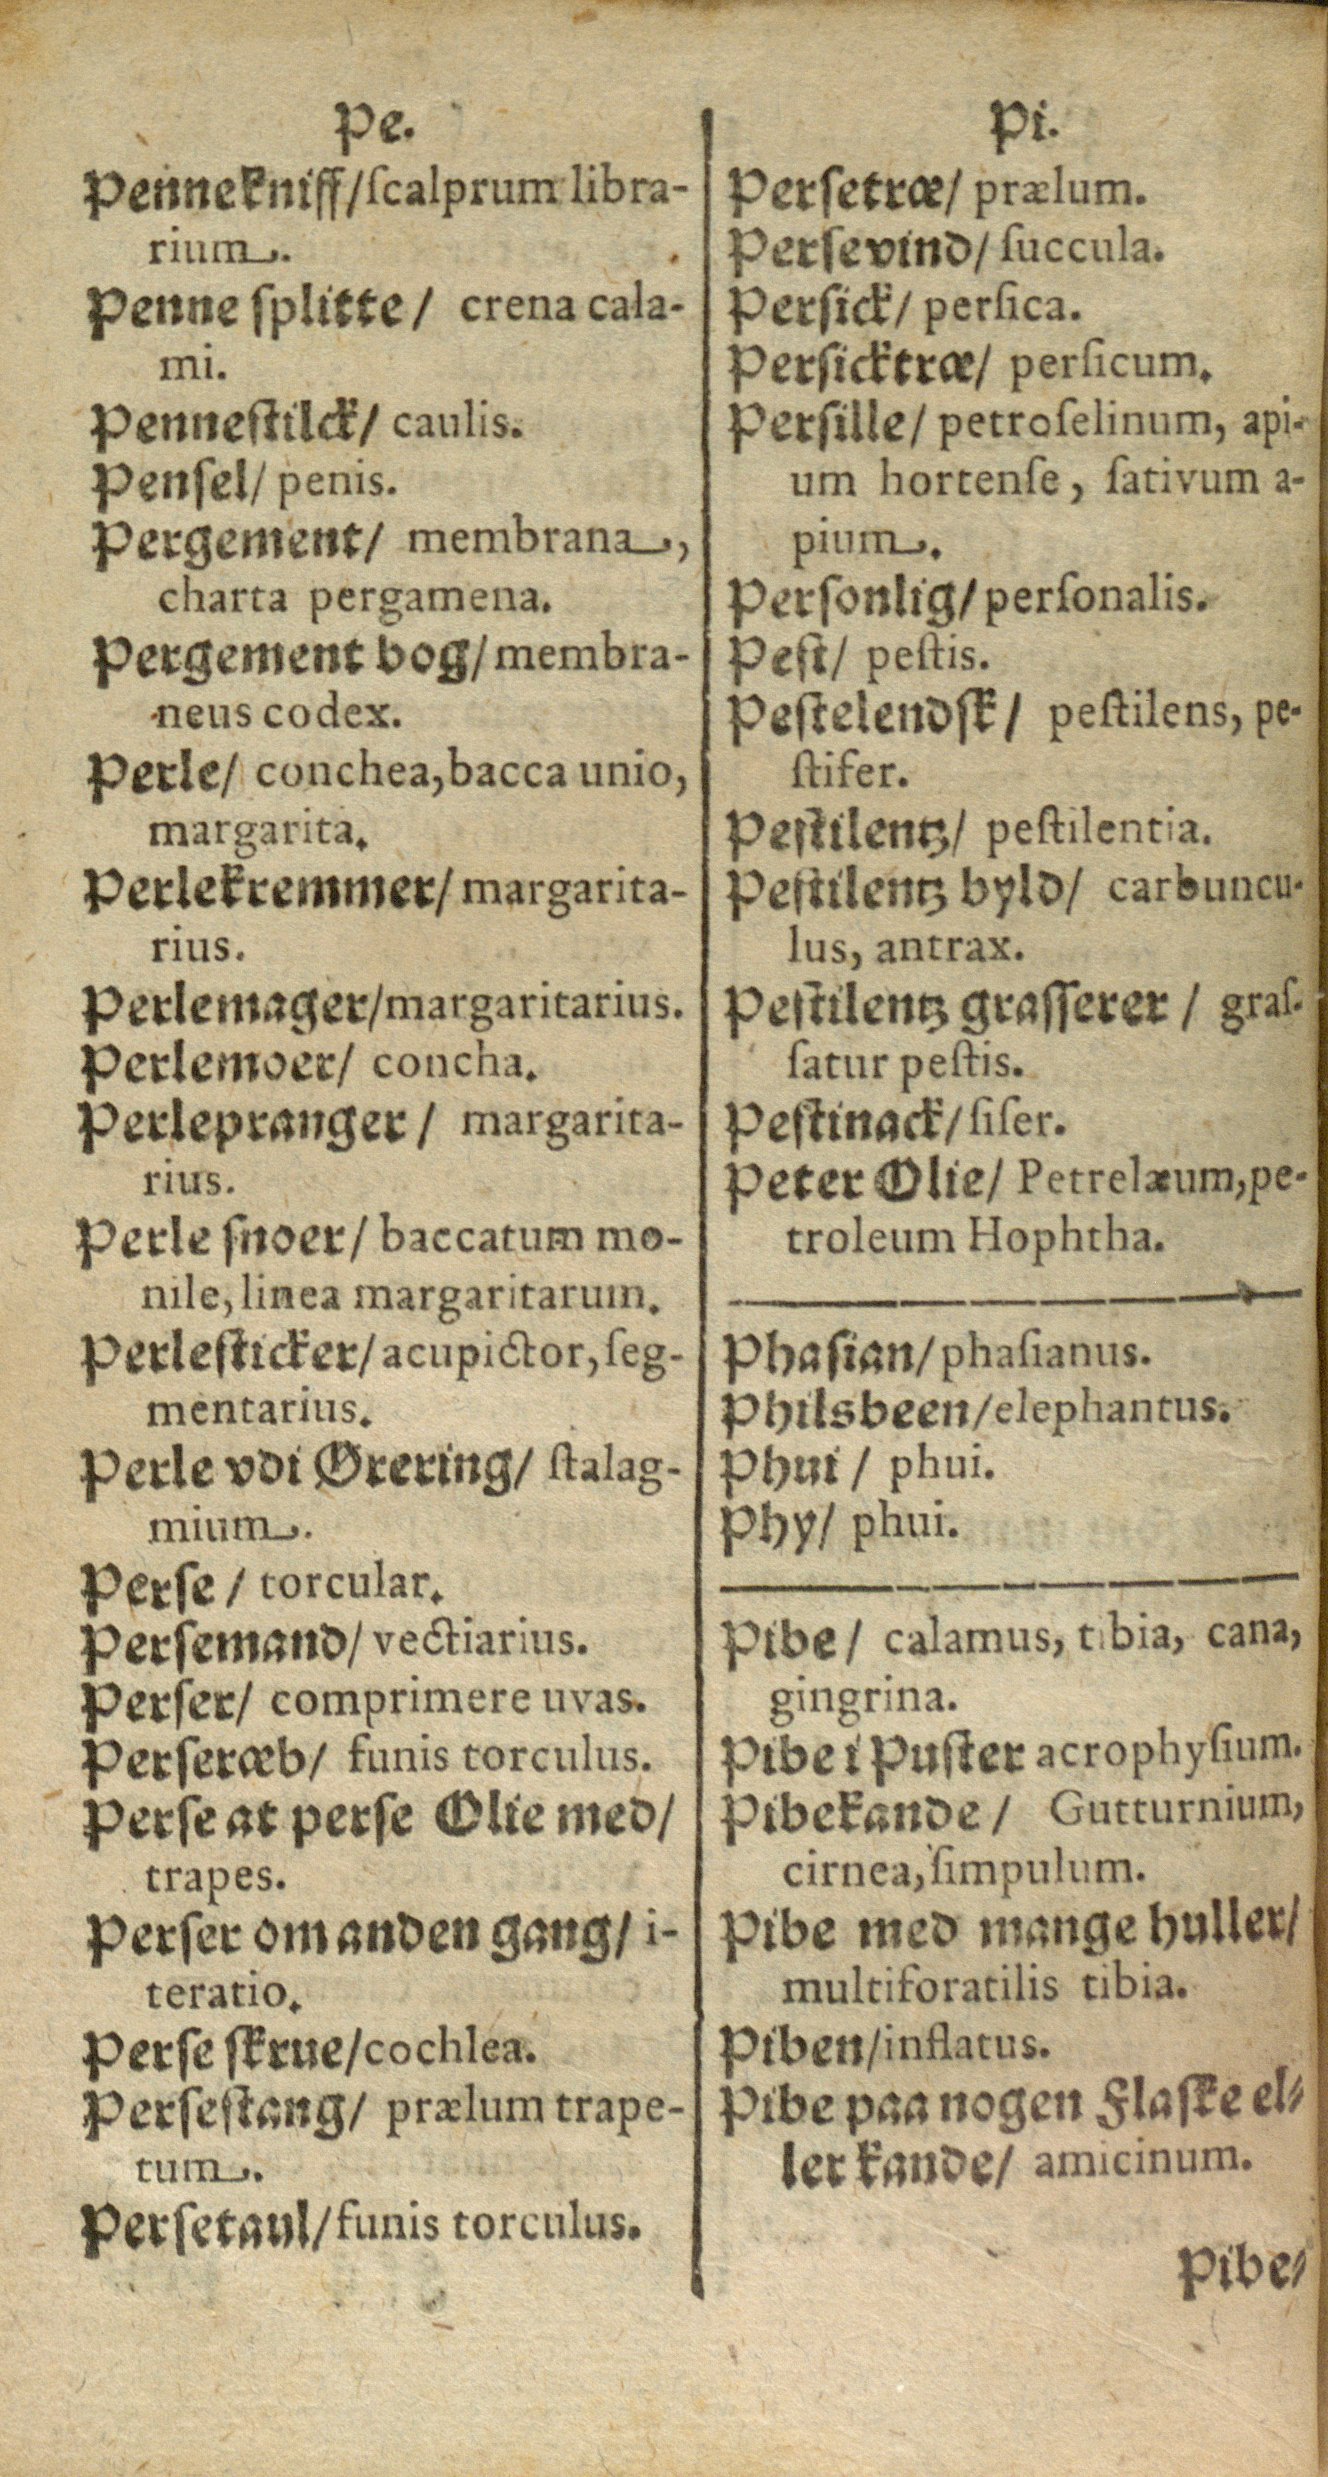 Pe.
Pennekniff/ſcalprum libra-
rium.
Penne ſplitte/ crena cala-
mi.
Penneſtilck/ caulis.
Penſel/ penis.
Pergement/ membrana,
charta pergamena.
Pergement bog/membra-
neus codex.
Perle/ conchea,bacca unio,
margarita.
Perlekremmer/margarita-
rius.
Perlemager/margaritarius.
Perlemoer/ concha.
Perlepranger/ margarita-
rius.
Perle ſnoer/ baccatum mo-
nile, linea margaritarum.
Perleſticker/acupictor, ſeg-
mentarius.
Perle vdi Ørering/ ſtalag-
mium.
Perſe/ torcular.
Perſemand/vectiarius.
Perſer/ comprimere uvas.
Perſeræb/ funis torculus.
Perſe at perſe Olie med/
trapes.
Perſer om anden gang/ i-
teratio.
Perſe ſkrue/cochlea.
Perſeſtang/ prælum trape-
tum.
Perſetaul/funis torculus.
Pi.
Perſetræ/ prælum.
Perſevind/ ſuccula.
Perſick/ perſica.
Perſicktræ/ perſicum.
Perſille/ petroſelinum, api-
um hortenſe, ſativum a-
pium.
Perſonlig/perſonalis.
Peſt/ peſtis.
Peſtelendſk/ peſtilens, pe-
ſtifer.
Peſtilentz/ peſtilentia.
Peſtilentz byld/ carbuncu-
lus, antrax.
Peſtilentz graſſerer/ graſ-
ſatur peſtis.
Peſtinack/ſiſer.
Peter Olie/ Petrelæum,pe-
troleum Hophtha.
Phaſian/phaſianus.
Philsbeen/elephantus.
Phui/ phui.
Phy/ phui.
Pibe/ calamus, tibia, cana,
gingrina.
Pibe i Puſter acrophyſium.
Pibekande/ Gutturnium,
cirnea, ſimpulum.
Pibe med mange huller/
multiforatilis tibia.
Piben/inflatus.
Pibe paa nogen Flaſke el-
ler kande/ amicinum.
Pibe-